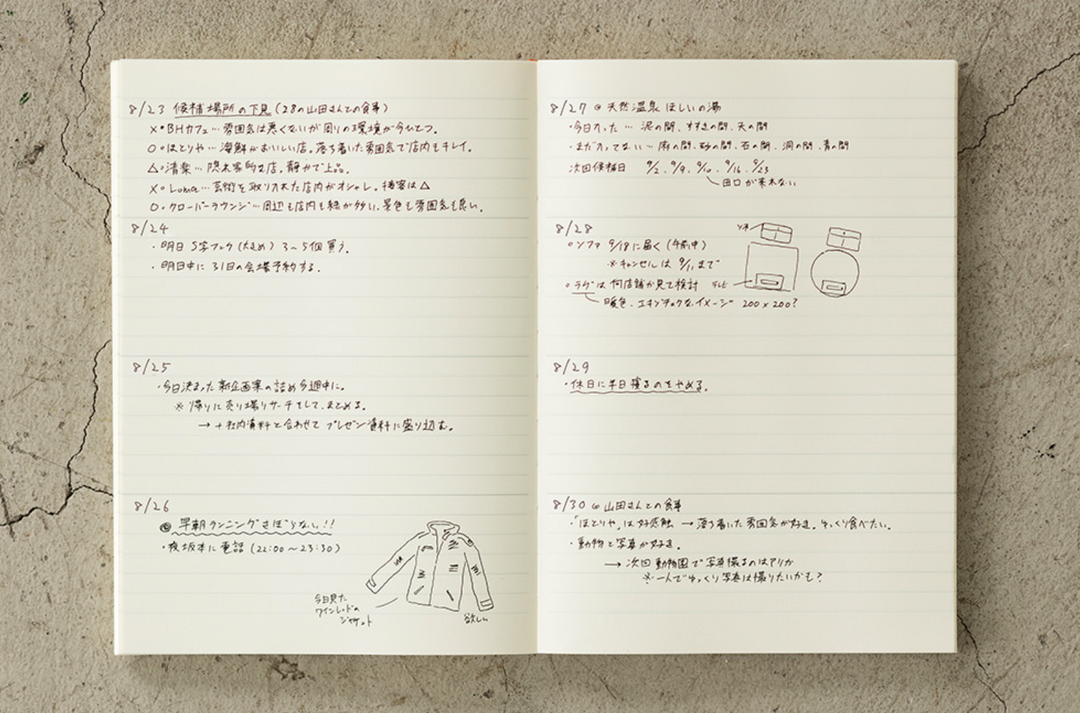 8/23 候補場所の下見 (28の山田さんとの食事)
×・BHカフェ… 雰囲気は悪くないが周りの環境が今ひとつ。
○・ほとりや… 海鮮がおいしい店。落ち着いた雰囲気で店内もキレイ。
△・清楽… 隠れ家的な店。静かで上品。
×・Loma… 芸術を取り入れた店内がオシャレ。接客は△
○・クローバーラウンジ… 周辺も店内も緑が多い。景色も雰囲気も良い。
8/24
・明日 S字フック (大きめ) 3〜5個買う。
・明日中に 31日の会場予約する。
8/25
・今日決まった新企画案の詰め今週中に。
※帰りに売り場リサーチをして、まとめる。
→ +社内資料と合わせて プレゼン資料に盛り込む。
8/26
◎ 早朝ランニングさぼらない!!
・夜坂本に電話 (22:00〜23:30)
今日見た
ワインレッドの
ジャケット
欲しい
8/27 @ 天然温泉 ほしいの湯
・今日入った … 泥の間、すすきの間、天の間
・まだ入ってない … 麻の間、砂の間、石の間、洞の間、青の間
次回候補日 9/2、9/9、9/10、9/16、9/23
田口が来れない
8/28
○ソファ 9/18に届く (午前中)
※キャンセルは 9/11 まで
○ラグは何店舗か見て検討
暖色、エキゾチックなイメージ 200×200?
ソファ
テレビ
8/29
・休日に半日寝るのをやめる。
8/30 @ 山田さんとの食事
・「ほとりや」は好感触 → 落ち着いた雰囲気が好き。ゆっくり食べたい。
・動物と写真が好き。
→ 次回動物園で写真撮るのはアリか
※一人でゆっくり写真は撮りたいかも?